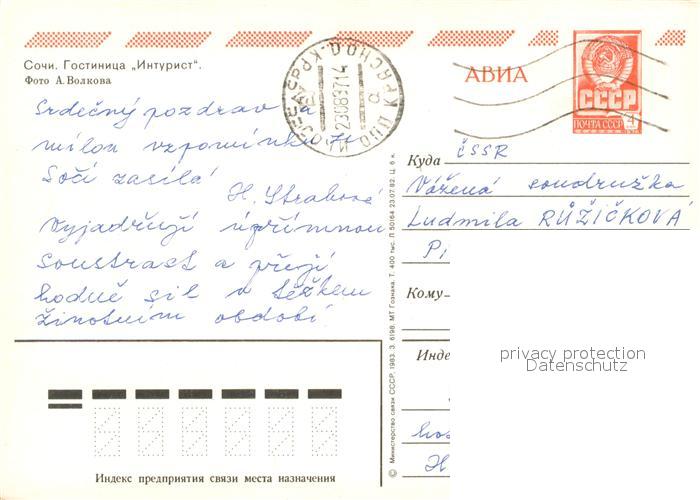 Сочи. Гостиница „Интурист".
Фото А. Волкова
Srdečný pozdrav a
milou vzpomínku z
Soči zasílá
H. Strabová
Vyjadřuji upřímnou
soustrast a přeji
hodně sil v těžkém
životním období.
АВИА
СССР
ПОЧТА СССР
4
230883714
Куда
ČSSR
Vážená soudružka
Ludmila RŮŽIČKOVÁ
Pi
Кому
Инде
privacy protection
Datenschutz
Индекс предприятия связи места назначения
© Министерство связи СССР, 1983. З. 6198. МТ Гознака. Т. 400 тыс. Л 50164 23.07.82 Ц. 6 к.